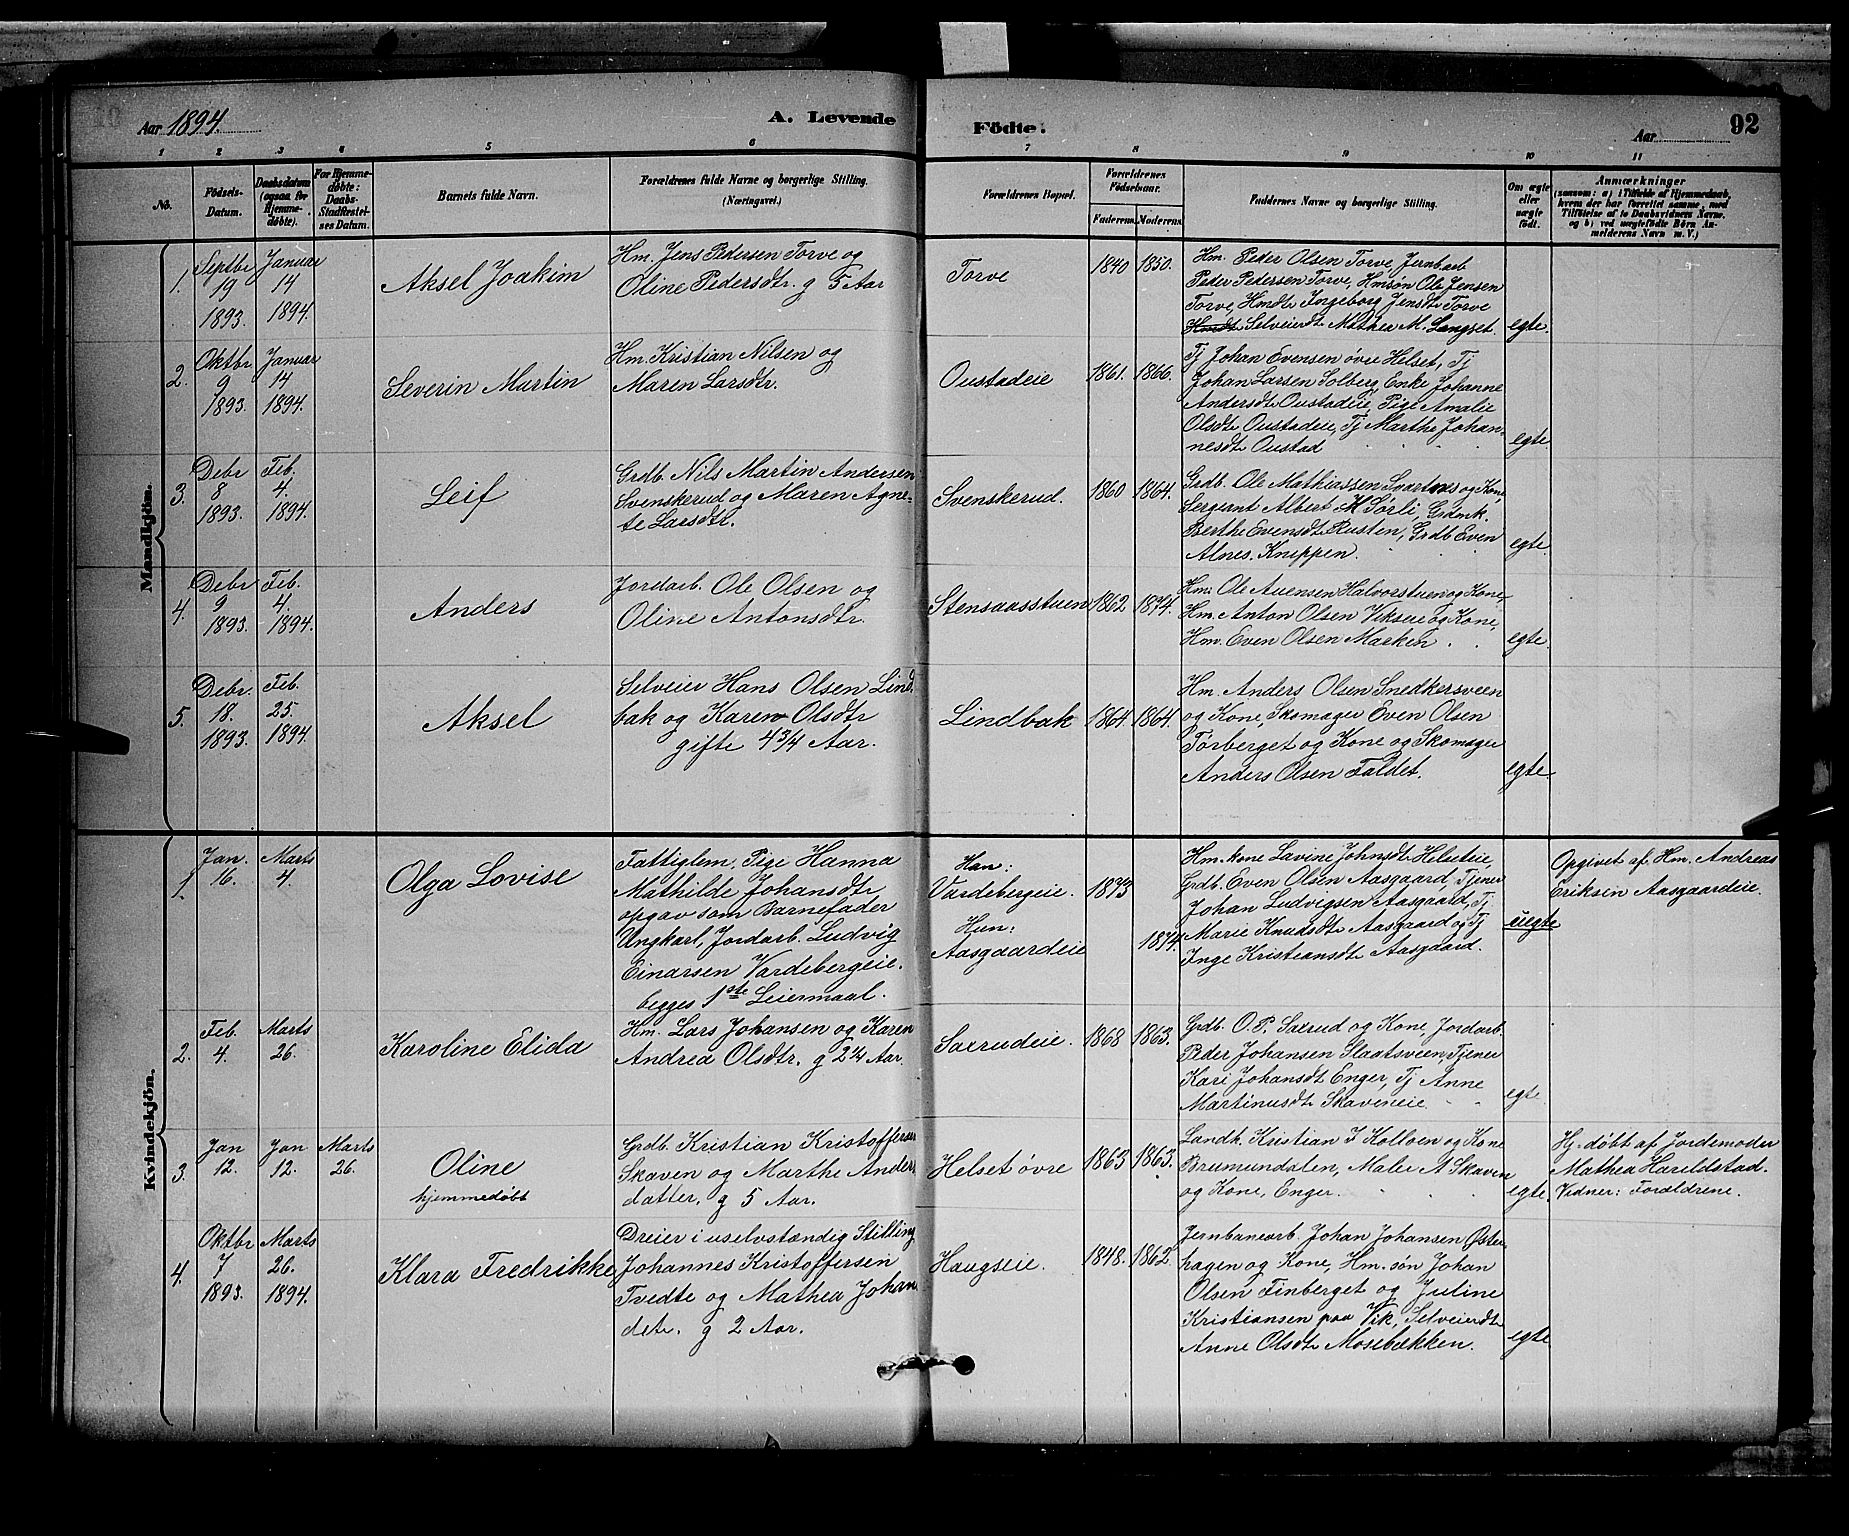 Aar 1894.
A. Levende
Födte.
Aar
92
1
2
3
4
5
6
7
8
9
10
11
No.
Födsels-
Datum.
Daabsdatum
(ogsaa for
Hjemme-
döbte).
For Hjemme-
döbte:
Daabs-
Stadfæstel-
ses Datum.
Barnets fulde Navn.
Forældrenes fulde Navne og borgerlige Stilling.
(Næringsvei.)
Forældrenes Bopæl.
Forældrenes
Födselsaar.
Faderens.
Moderens.
Faddernes Navne og borgerlige Stilling.
Om ægte
eller
uægte
födt.
Anmærkninger
(saasom: a) i Tilfælde af Hjemmedaab,
hvem der har forrettet samme, med
Tilföielse af to Daabsvidners Navne.
og b) ved uægtefödte Börn An-
melderens Navn m. V.)
Mandkjön.
1.
Septbr
19
1893.
Januar
14
1894.
Aksel Joakim
Hm. Jens Pedersen Torve og
Oline Pedersdtr. g 5 Aar
Torve
1840
1850.
Hm. Peder Olsen Torve, Jernbarb
Peder Pedersen Torve, Hmsøn Ole Jensen
Torve, Hmdtr Ingeborg Jensdtr Torve
Hmdt Selveierdt Mathea M. Langset.
egte.
2.
Oktbr
9
1893.
Januar
14
1894.
Severin Martin
Hm. Kristian Nilsen og
Maren Larsdtr.
Oustadeie
1861.
1866.
Tj Johan Evensen øvre Helset, Tj
Johan Larsen Solberg, Enke Johanne
Andersdt Oustadeie, Pige Amalie
Olsdtr Oustadeie, Tj Marthe Johan-
nesdt Oustad
egte.
3.
Debr
8
1893.
Feb.
4.
1894.
Leif
Grdb. Nils Martin Andersen
Svenskerud og Maren Agne-
te Larsdtr.
Svenskerud.
1860
1864.
Grdb. Ole Mathiassen Svartnes og Kone,
Sergeant Albert M Sørli, Grdmk.
Berthe Evensdtr Rusten, Grdb Even
Alnes. Knuppen.
egte.
4.
Debr
9
1893.
Feb.
4.
1894.
Anders
Jordarb. Ole Olsen og
Oline Antonsdtr.
Stensaasstuen
1862
1874.
Hm. Ole Auensen Halvorstuen og Kone,
Hm. Anton Olsen Vikseie og Kone,
Hm. Even Olsen Marken.
egte.
5.
Debr.
18.
1893.
Feb.
25.
1894.
Aksel
Selveier Hans Olsen Lind-
bak og Karen Olsdtr
gifte 4 3/4 Aar.
Lindbak
1864.
1864.
Hm. Anders Olsen Snedkersveen
og Kone, Skomager Even Olsen
Torberget og Kone og Skomager
Anders Olsen Faldet.
egte.
Kvindekjön.
1.
Jan.
16.
Marts
4.
Olga Lovise
Fattiglem, Pige Hanna
Mathilde Johansdtr
opgav som Barnefader
Ungkarl, Jordarb. Ludvig
Einarsen Vardebergeie.
begges 1ste Leiermaal.
Han:
Vardebergeie.
Hun:
Aasgaardeie
1873
1874.
Hm. kone Lavine Johnsdt Helseteie,
Grdb. Even Olsen Aasgaard, Tjener
Johan Ludvigsen Aasgaard, Tj
Marie Knudsdtr Aasgaard og Tj
Inge Kristiansdtr Aasgaard.
uegte
Opgivet af Hm. Andreas
Eriksen Aasgaardeie.
2.
Feb.
4.
Marts
26.
Karoline Elida
Hm. Lars Johansen og Karen
Andrea Olsdtr. g 2 1/4 Aar.
Saxrudeie.
1868
1863.
Grdb. O. P. Saxrud og Kone, Jordarb.
Peder Johansen Slaatsveen, Tjener
Kari Johansdt Enger, Tj Anne
Martinusdtr Skaveneie
egte.
3.
Jan
12.
Jan
12.
Marts
26.
Oline
hjemmedøbt
Grdb. Kristian Kristoffersen
Skaven og Marthe Anders
datter, g 5 Aar.
Helset øvre
1863
1863.
Landh. Kristian J Kolloen og Kone
Brumundalen, Maler A Skaven
og Kone, Enger.
egte.
Hj. døbt af Jordemoder
Mathea Hareldstad.
Vidner: Forældrene.
4.
Oktbr
7
1893.
Marts
26.
1894.
Klara Fredrikke
Dreier i uselvstændig Stilling
Johannes Kristoffersen
Tvedte og Mathea Johan
detr. g 2 Aar.
Haugseie.
1848.
1862.
Jernbanearb. Johan Johansen Øster-
hagen og Kone, Hm. søn Johan
Olsen Finberget og Juline
Kristiansen paa Vik, Selveierdtr
Anne Olsdtr Mosebækken.
egte.